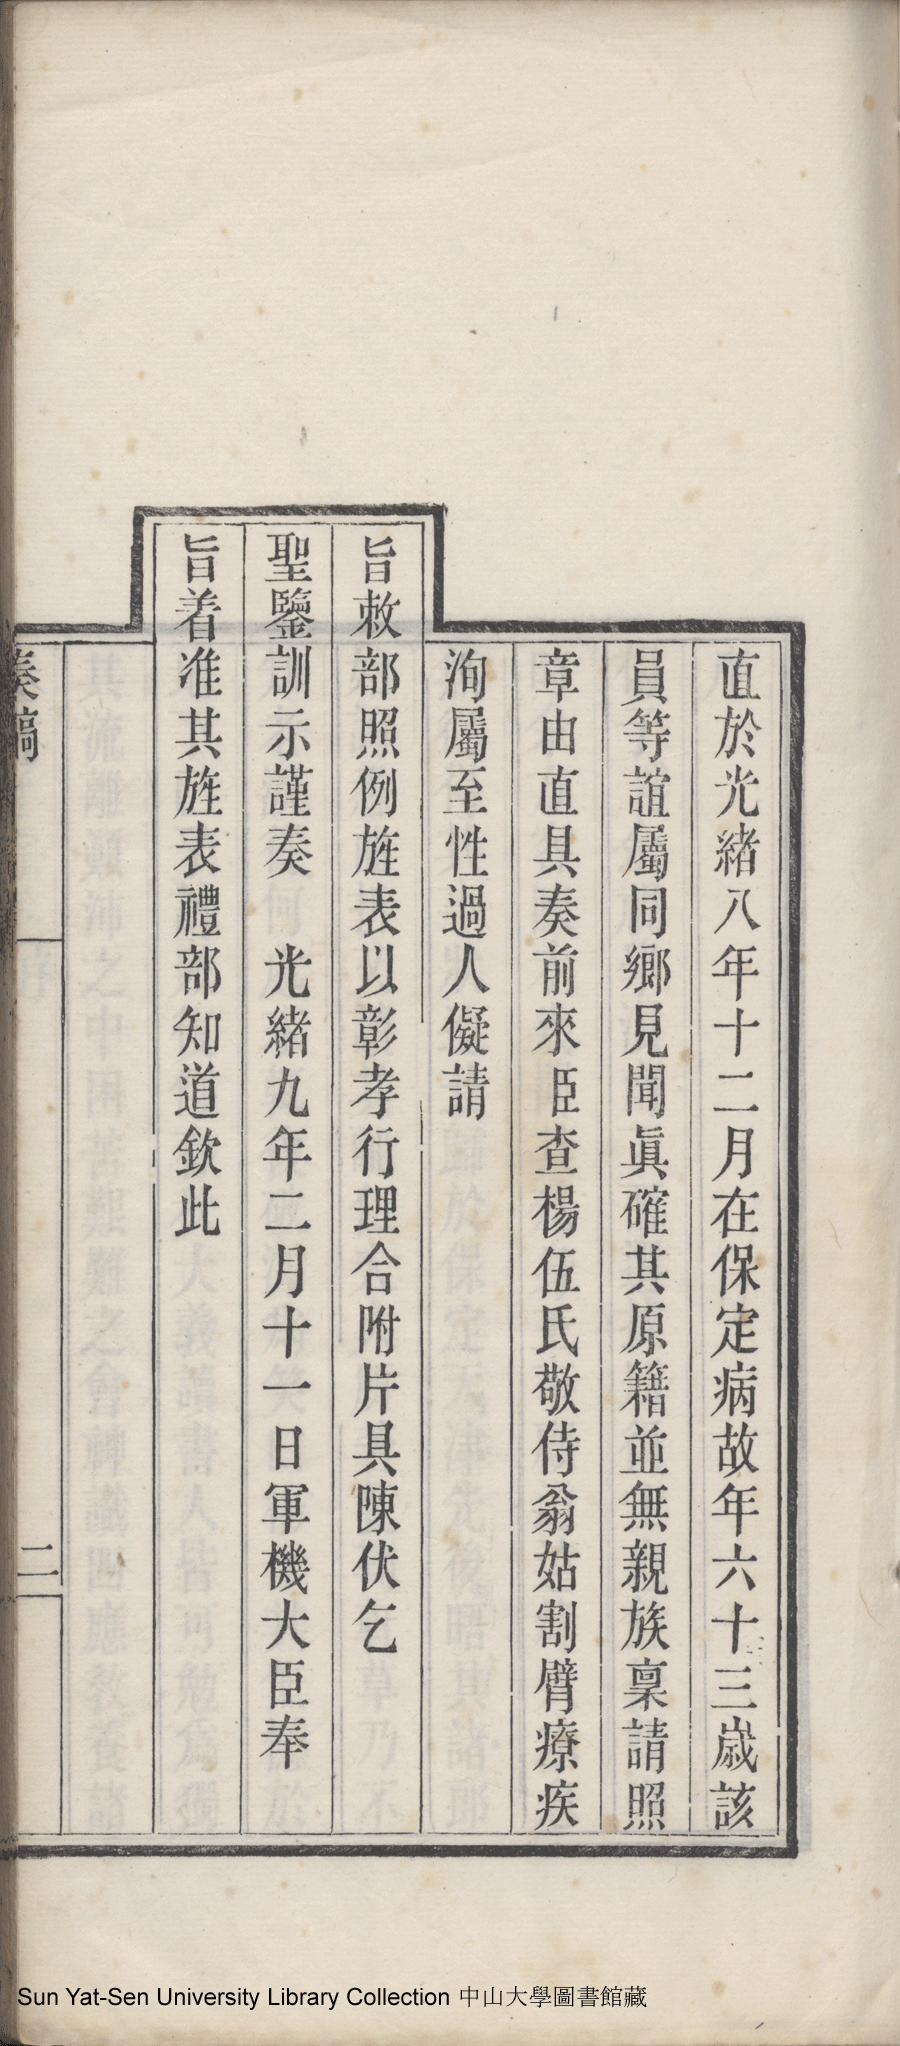 直於光緒八年十二月在保定病故年六十三歲該
員等誼屬同鄉見聞眞確其原籍並無親族稟請照
章由直具奏前來臣查楊伍氏敬侍翁姑割臂療疾
洵屬至性過人儗請
旨敕部照例旌表以彰孝行理合附片具陳伏乞
聖鑒訓示謹奏 光緒九年二月十一日軍機大臣奉
旨着准其旌表禮部知道欽此
奏稿 二
Sun Yat-Sen University Library Collection 中山大學圖書館藏